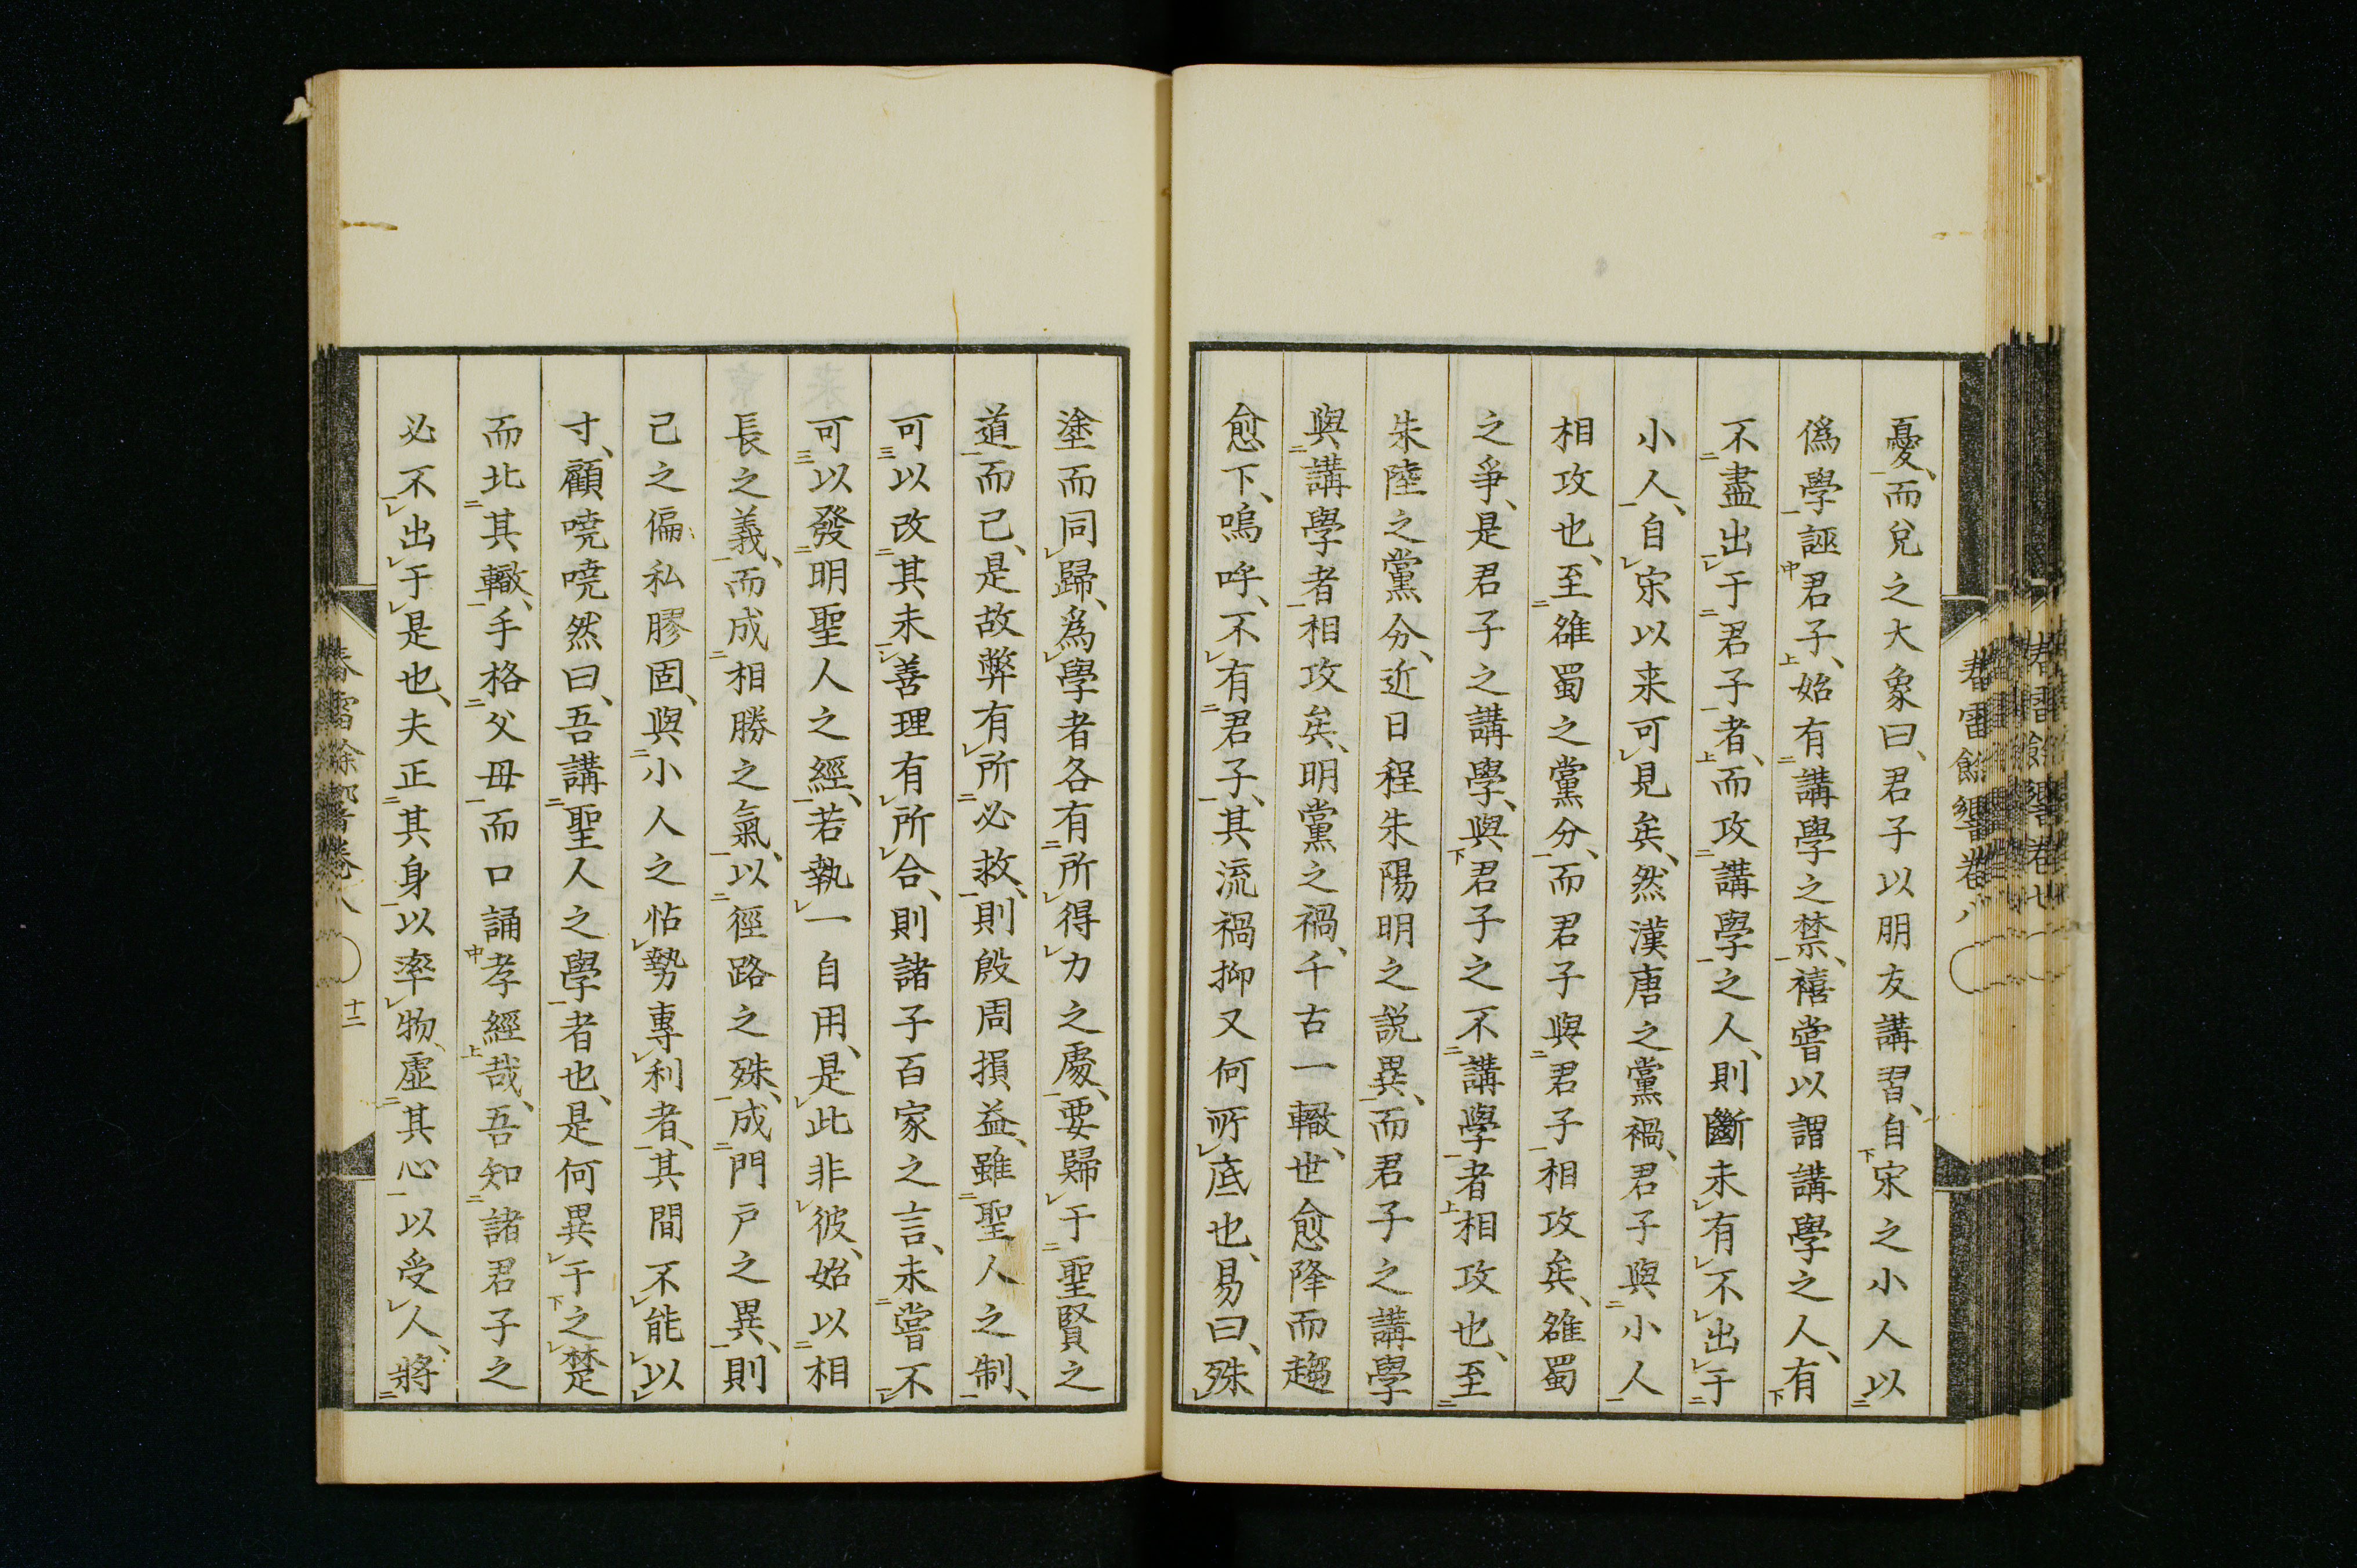 憂、而兌之大象曰、君子以朋友講習、自宋之小人以
僞學誣君子、始有講學之禁、禧嘗以謂講學之人、有
不盡出于君子者、而攻講學之人、則斷未有不出于
小人、自宋以来可見矣、然漢唐之黨禍、君子與小人
相攻也、至雒蜀之黨分、而君子與君子相攻矣、雒蜀
之爭、是君子之講學、與君子之不講學者相攻也、至
朱陸之黨分、近日程朱陽明之説異、而君子之講學
與講學者相攻矣、明黨之禍、千古一轍、世愈降而趨
愈下、嗚呼、不有君子、其流禍抑又何所底也、易曰、殊
塗而同歸、爲學者各有所得力之處、要歸于聖賢之
道而已、是故弊有所必救、則殷周損益、雖聖人之制、
可以改其未善理有所合、則諸子百家之言、未嘗不
可以發明聖人之經、若執一自用、是此非彼、始以相
長之義、而成相勝之氣、以徑路之殊、成門戸之異、則
己之偏私膠固、與小人之怙勢專利者、其間不能以
寸、顧嘵嘵然曰、吾講聖人之學者也、是何異于之楚
而北其轍、手格父母而口誦孝經哉、吾知諸君子之
必不出于是也、夫正其身以率物、虚其心以受人、將
春雷餘響卷八
十二
春雷餘響卷八